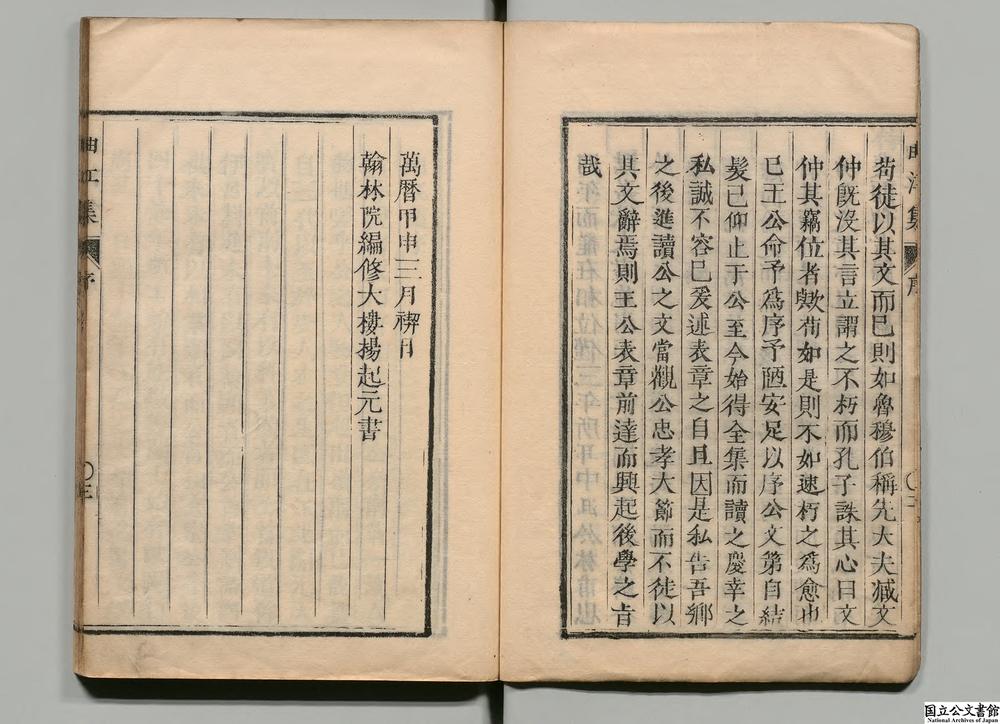 苟徒以其文而已則如魯穆伯稱先大夫臧文
仲旣没其言立謂之不朽而孔子誅其心曰文
仲其竊位者歟苟如是則不如速朽之爲愈也
已王公命予爲序予陋安足以序公文第自結
髪已仰止于公至今始得全集而讀之慶幸之
私誠不容已爰述表章之自且因是私告吾鄉
之後進讀公之文當觀公忠孝大節而不徒以
其文辭焉則王公表章前達而興起後學之㫖
哉
萬曆甲申三月禊日
翰林院編修大樓揚起元書
曲江集
序
三
国立公文書館
National Archives of Japan